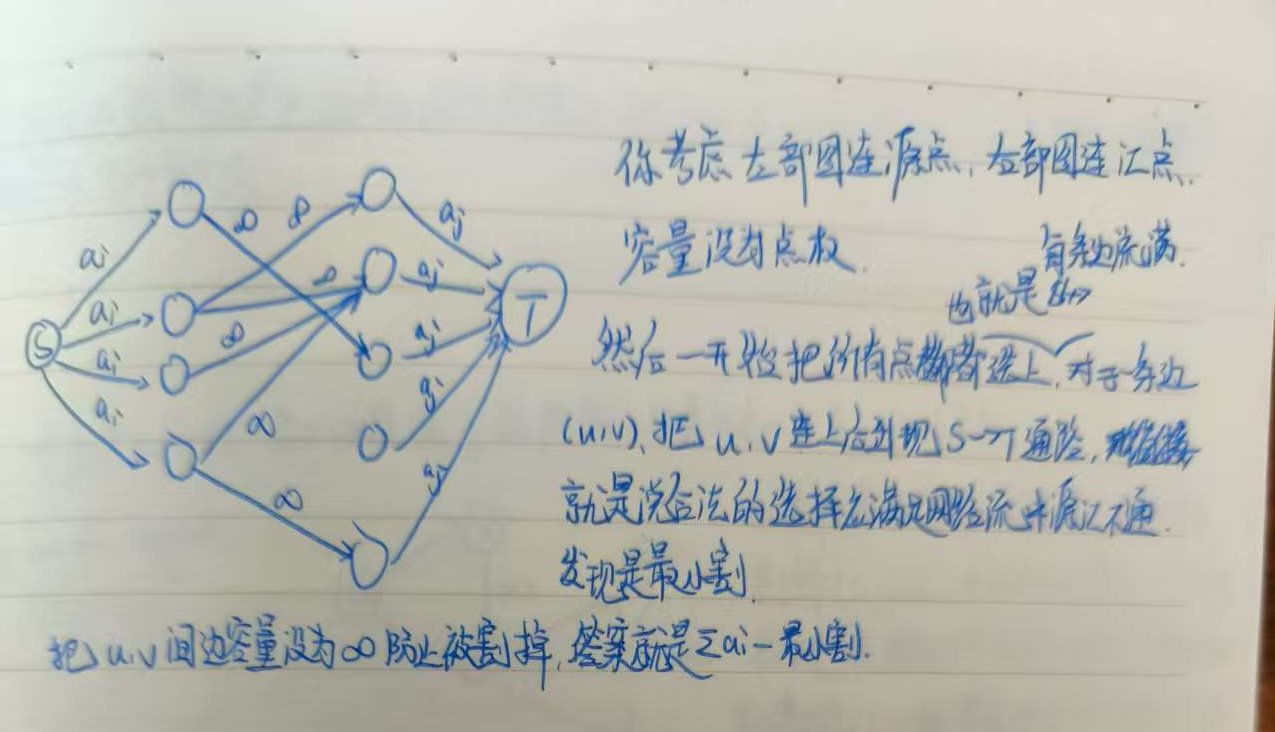 你考虑左部图连源点,右部图连汇点.
容量设为点权.
有条边流满.
也就是
然后一开始把所有点都选上,对于一条边
(u,v),把u,v连上后出现S→T通路,
就是说合法的选择应满足网络流中源汇不通.
发现是最小割.
把u,v间边容量设为∞防止被割掉,答案就是Σai-最小割.
ai
ai
ai
ai
S
∞
∞
∞
∞
∞
∞
aj
aj
aj
aj
aj
T